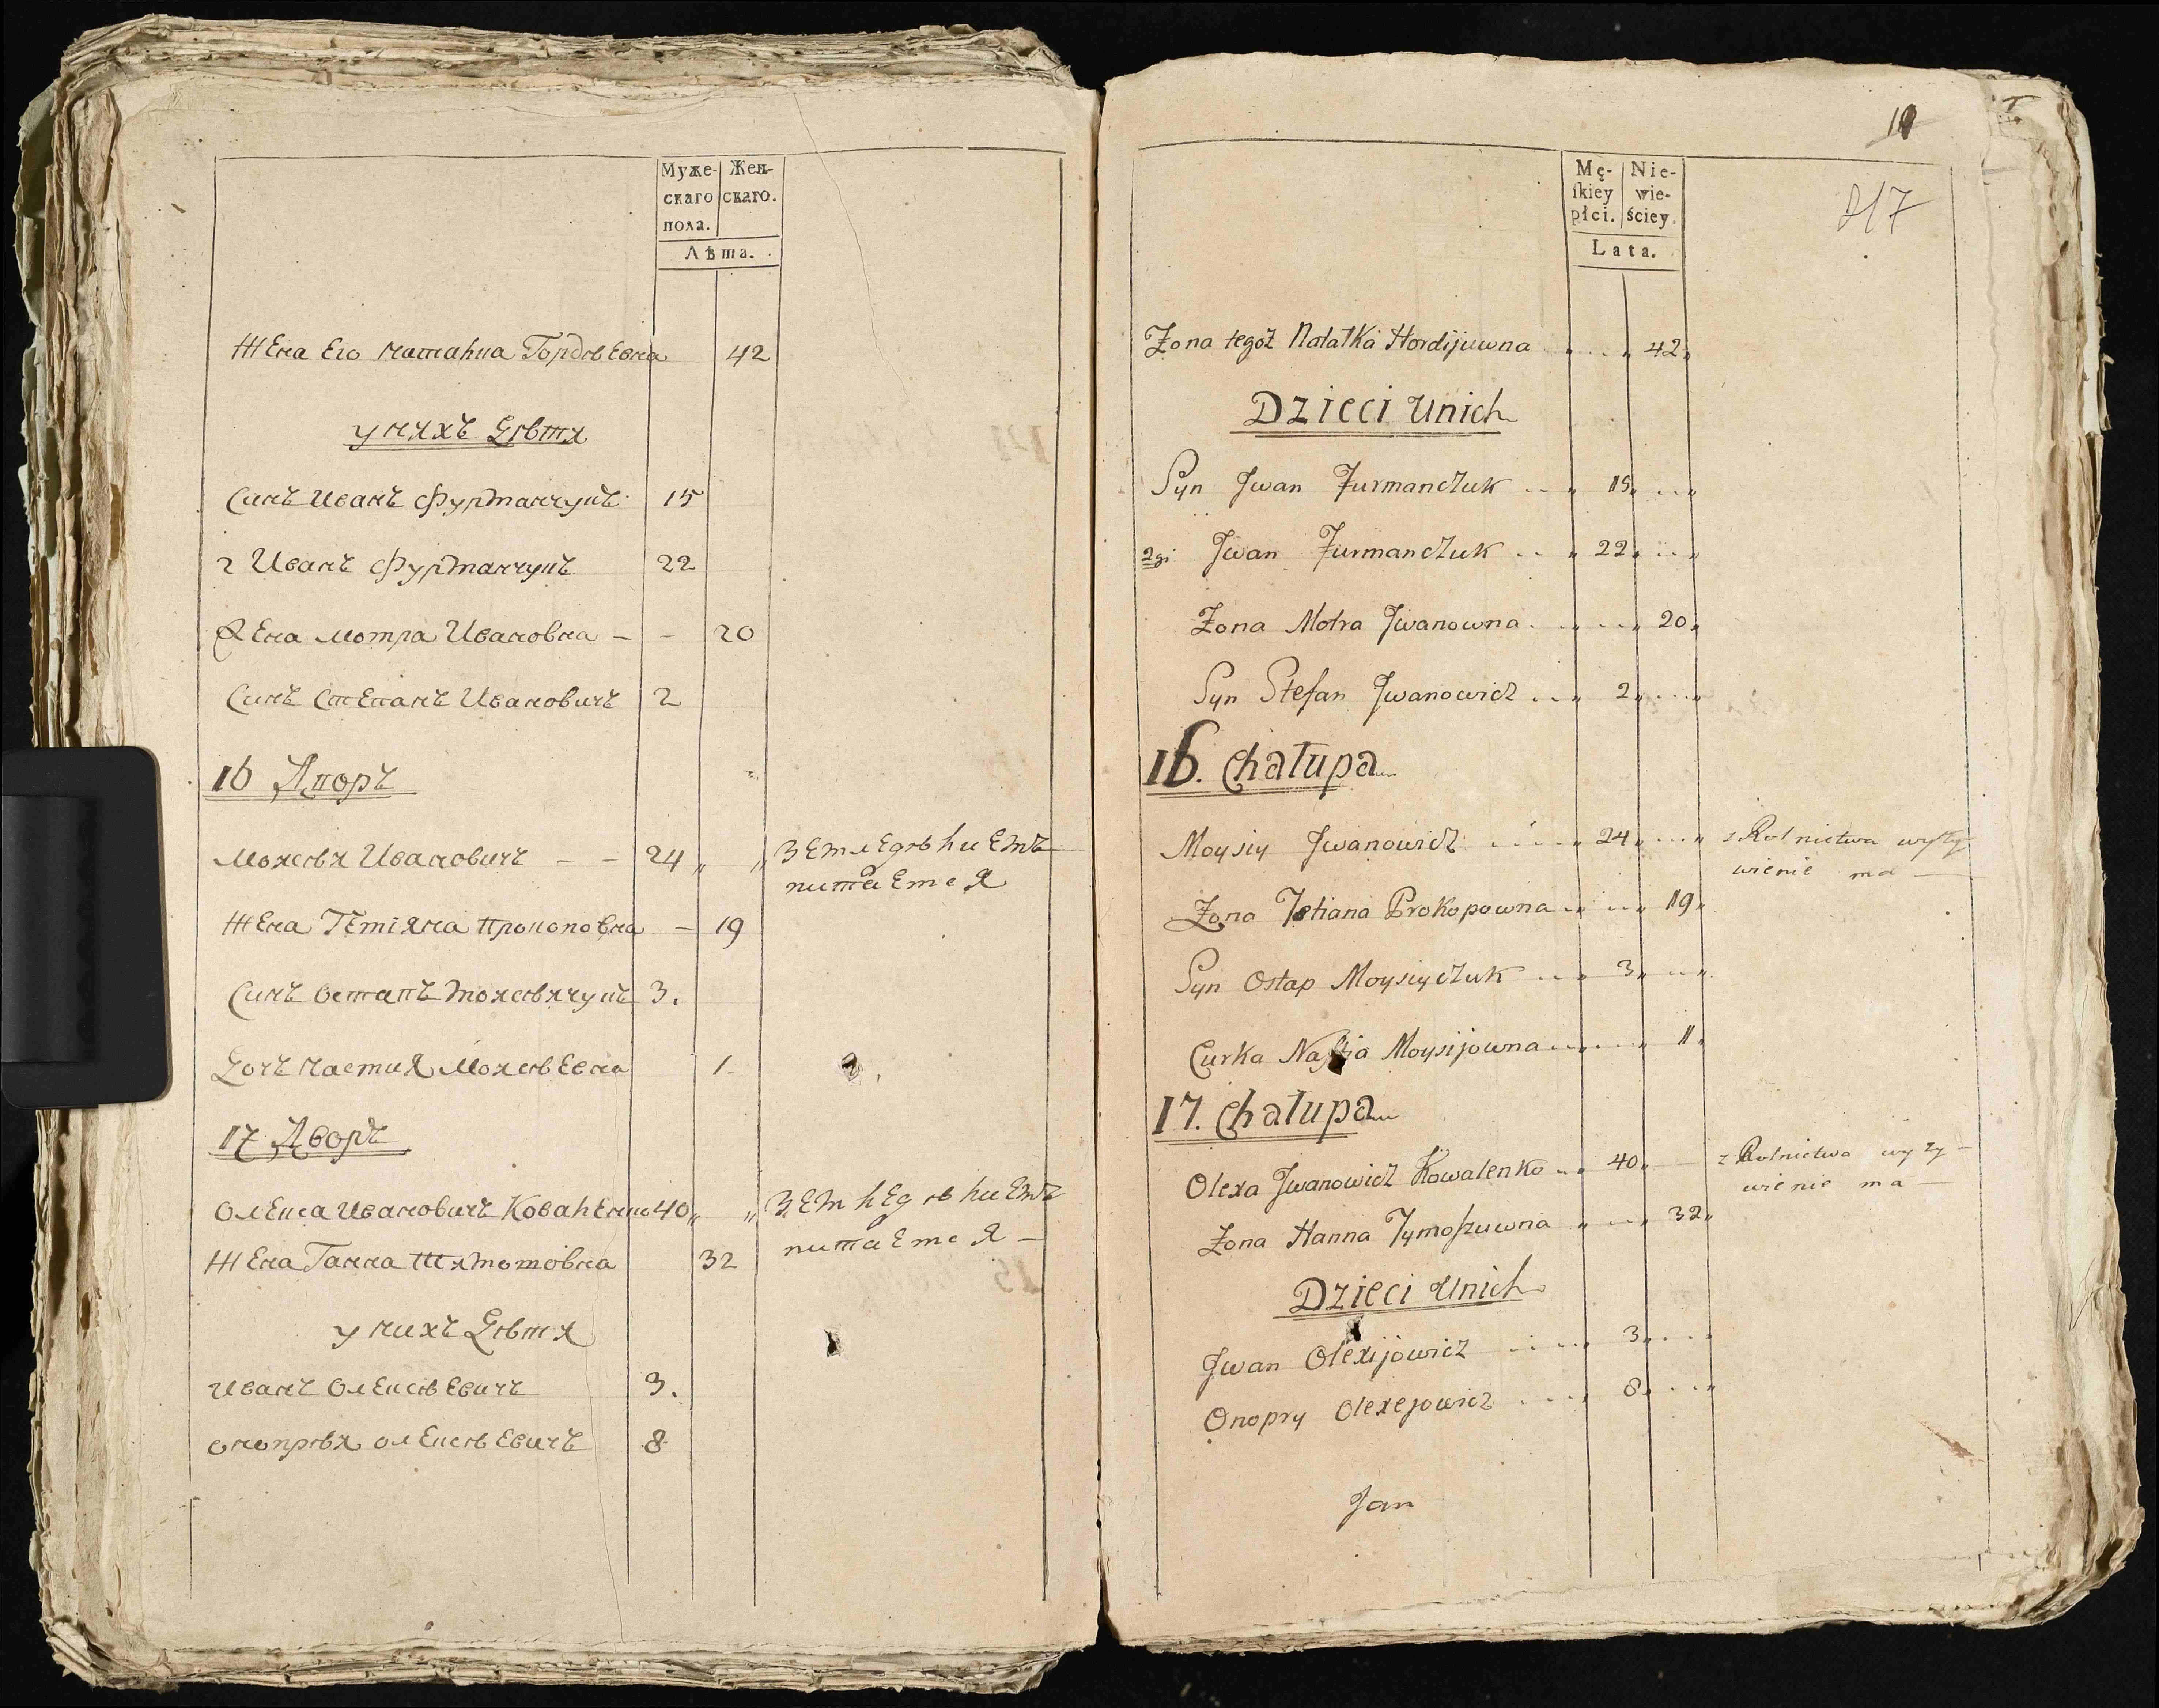 Муже-
скаго
пола.
Жен-
скаго.
Лѣта.
Жена Его Наталка Гордѣевна 42
у няхъ Дѣтя
Синъ Иванъ Фурманчукъ 15
2 Иванъ Фурманчукъ 22
Жена Мотра Ивановна – – 20
Синъ Степанъ Ивановичъ 2
16 Дворъ
Мохсѣя Ивановичъ – – 24 „ „ Землѣдѣлиемъ
питается
Жена Тетіяна Прокоповна – 19
Синъ Остапъ 3.
Дочъ Настия 1
17 Дворъ
Олекса Ивановичъ Коваленко 40 „ „ Земледѣлиемъ
питается –
Жена Ганна 32
у нихъ Дѣтя
Иванъ Олексѣевичъ 3.
Онопрѣя Олексѣевичъ 8
10
217
Mę-
ſkiey
płci.
Nie-
wie-
ściey.
Lata.
Żona tegoż Natałka Hordijuwna 42
Dzieci unich
Syn Jwan Furmanczuk 15
2gi Jwan Furmanczuk 22
Żona Motra Jwanowna 20
Syn Stefan Jwanowicz 2
16. Chałupa
Moysiy Jwanowicz 24 z Rolnictwa wyży
wienie ma –
Żona Tetiana Prokopowna 19
Syn Ostap Moysiyczuk 3
Curka Moysijowna 1
17. Chałupa
Olexa Jwanowicz Kowalenko 40 z Rolnictwa wyży –
wienie ma –
Żona Hanna Tymoſzuwna 32
Dzieci unich
Jwan Olexijowicz 3
Onopry Olexejowicz 8
Jan